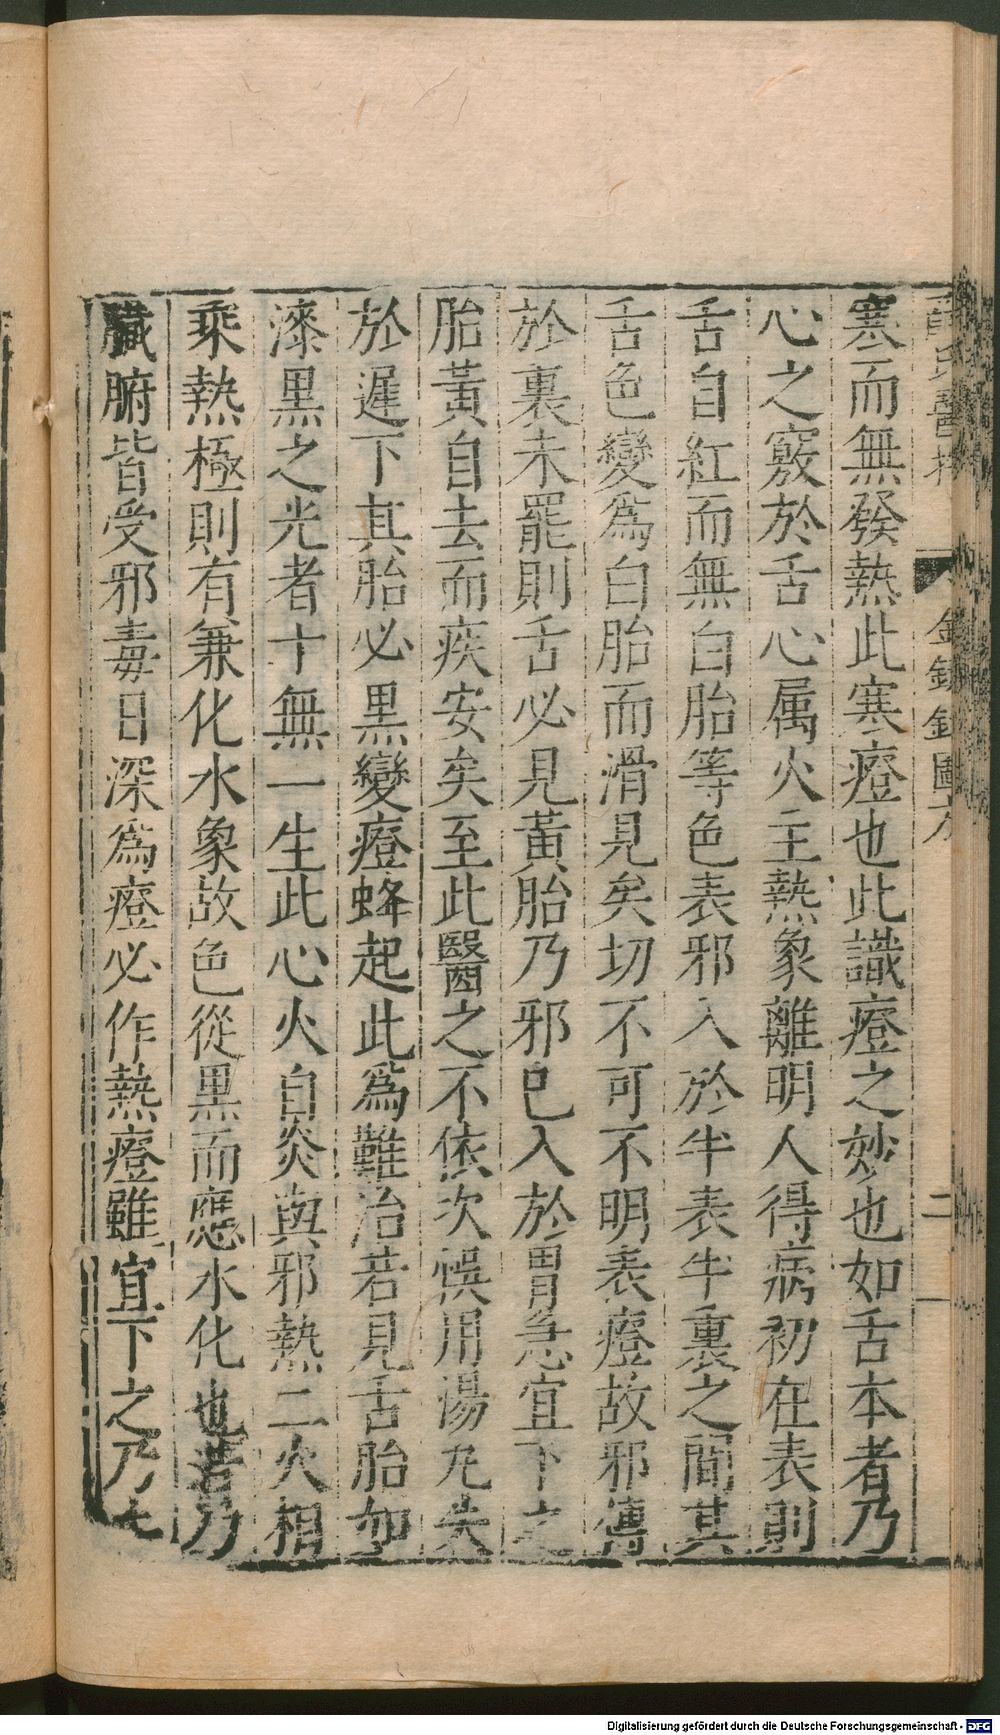 薛氏醫按 金鏡錄圖方 二
寒而無發熱此寒癦也此識癦之妙也如舌本者乃
心之竅於舌心属火主熱象離明人得病初在表則
舌自紅而無白胎等色表邪入於半表半裏之間其
舌色變爲白胎而滑見矣切不可不明表癦故邪傳
於裏未罷則舌必見黃胎乃邪已入於胃急宜下之
胎黃自去而疾安矣至此醫之不依次悞用湯丸失
於遲下其胎必黒變癦蜂起此爲難治若見舌胎如
漆黒之光者十無一生此心火自炎與邪熱二火相
乘熱極則有兼化水象故色從黒而應水化也若乃
臟腑皆受邪毒日深爲癦必作熱癦雖宜下之乃去
Digitalisierung gefördert durch die Deutsche Forschungsgemeinschaft - DFG